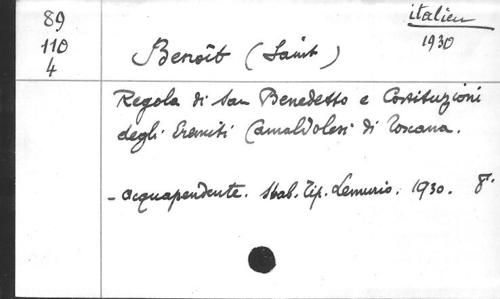 89
110
4
italien
1930
Benoît (Saint)
Regola di San Benedetto e Costituzioni
degli Eremiti Camaldolesi di Toscana.
- Acquapendente. Stab. Tip. Lemurio. 1930. 8°.